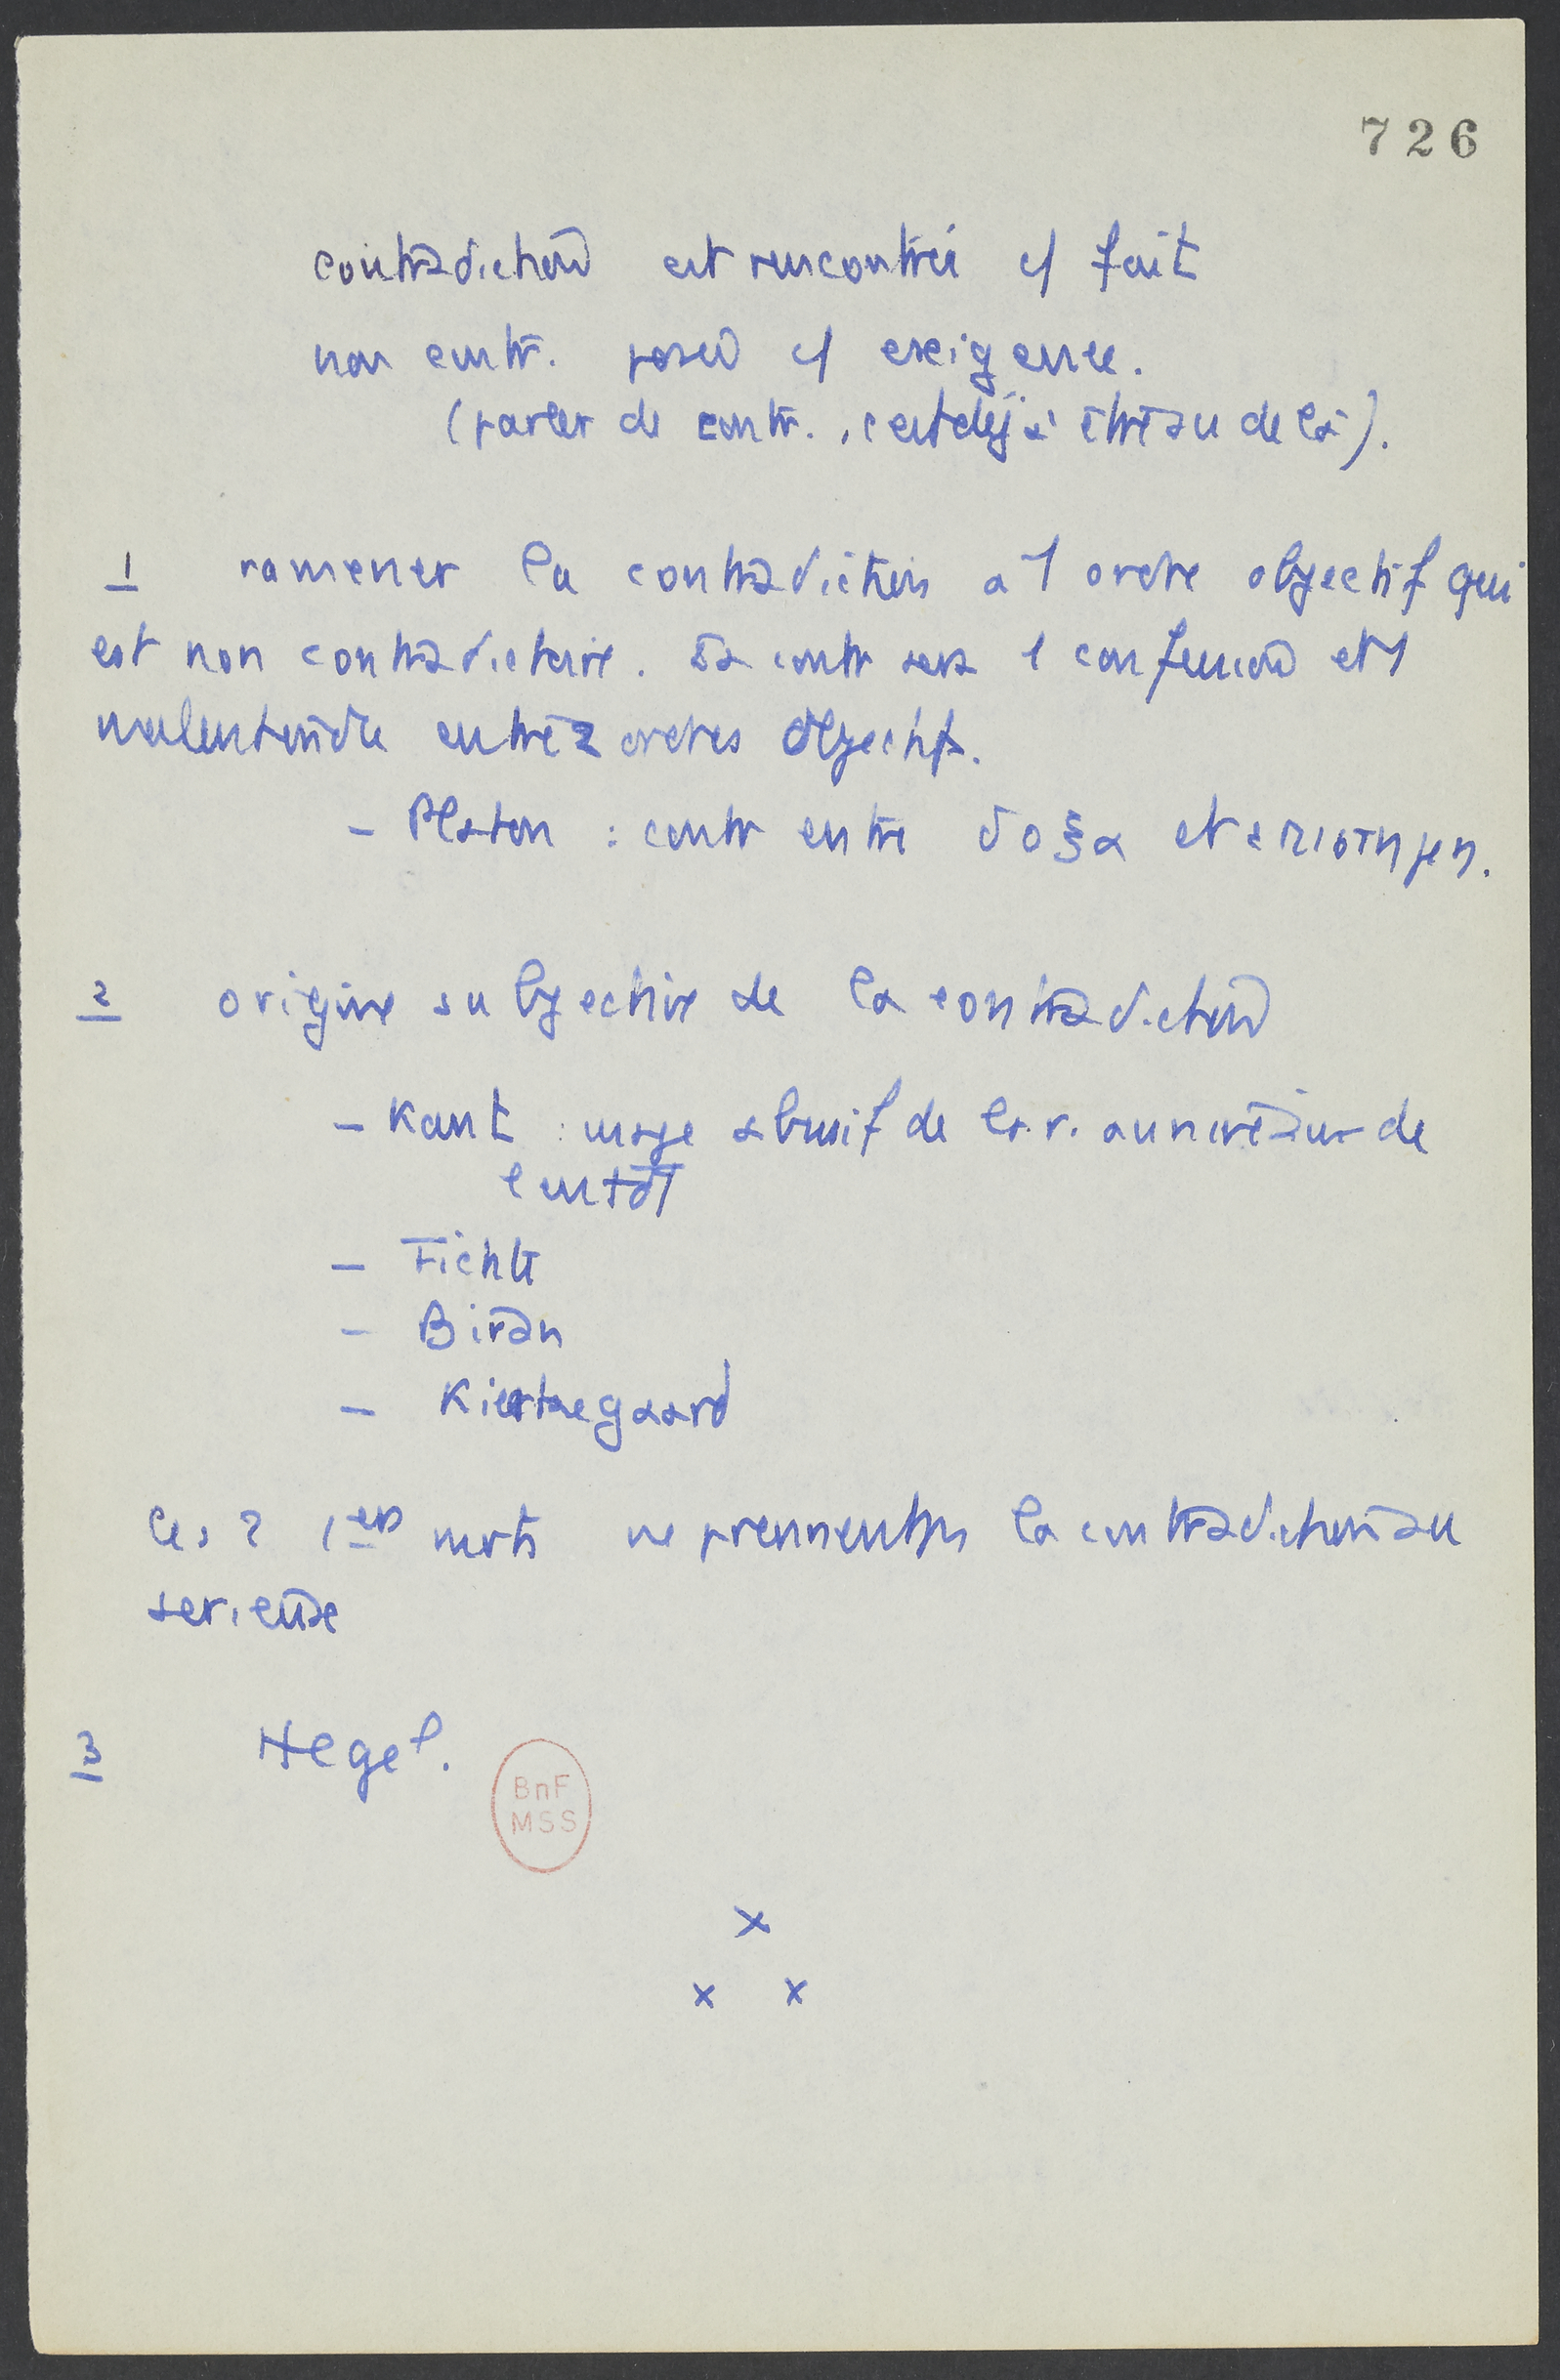 726
contradiction est rencontrée c/ fait
non contr. posée c/ exigence.
(parler de contr., c'est déjà être au delà).
1 ramener la contradiction à 1 ordre objectif qui
est non contradictoire. La contr sera 1 confusion et 1
malentendu entre 2 ordres objectifs.
- Platon : contr entre δοξα et επιστημη.
2 origine subjective de la contradiction
- Kant : usage abusif de la r. au niveau de
- Fichte
- Biran
- Kierkegaard
Les 2 1ers ne prennent pas la contradiction au
3 Hegel.
BnF
MSS
x
x x